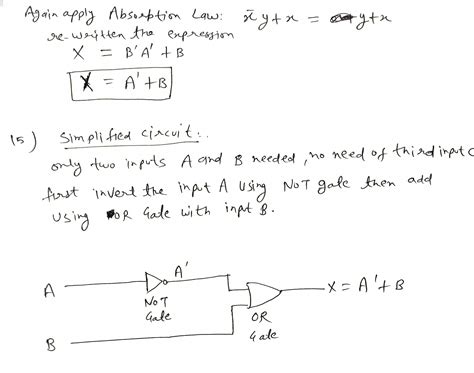 Again apply Absorption Law: x̄y+x = y+x
re-written the expression
X = B'A' + B
X = A' + B
15) Simplified circuit:.
only two inputs A and B needed, no need of third input C
first invert the input A using NOT gate then add
using OR Gate with input B.
A'
A
NOT
Gate
X = A' + B
OR
Gate
B